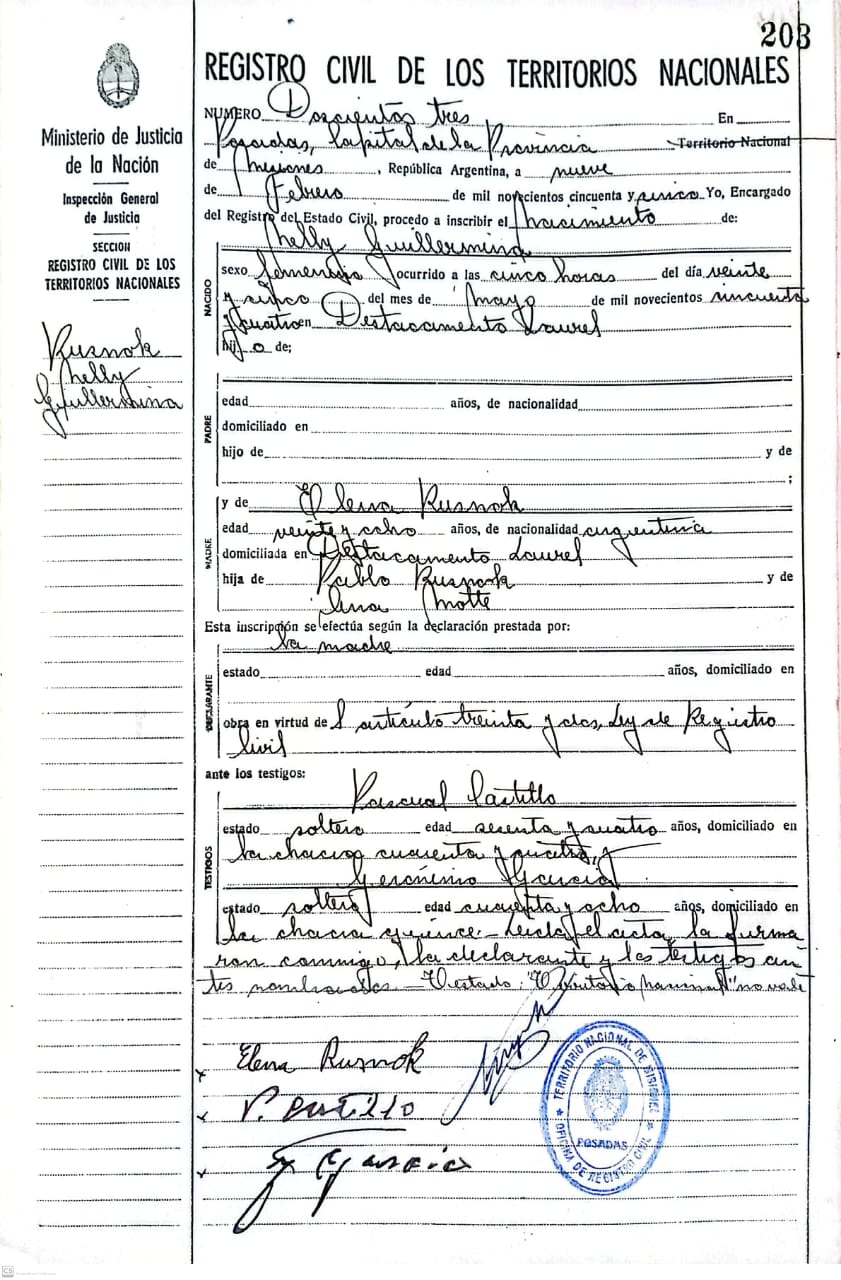 203
REGISTRO CIVIL DE LOS TERRITORIOS NACIONALES
Ministerio de Justicia
de la Nación
Inspección General
de Justicia
SECCION
REGISTRO CIVIL DE LOS
TERRITORIOS NACIONALES
Rusnok
Nelly
Guillermina
NUMERO Doscientos tres En
Posadas, Capital de la Provincia Territorio Nacional
de Misiones, República Argentina, a nueve
de Febrero de mil novecientos cincuenta y cinco Yo, Encargado
del Registro del Estado Civil, procedo a inscribir el nacimiento de:
Nelly Guillermina
NACIDO
sexo femenino ocurrido a las cinco horas del día veinte
y cinco del mes de mayo de mil novecientos cincuenta
y cuatro en Destacamento Laurel
hij a de;
PADRE
edad años, de nacionalidad
domiciliado en
hijo de y de
;
MADRE
y de Elena Rusnok
edad veinte y ocho años, de nacionalidad argentina
domiciliada en Destacamento Laurel
hija de Pablo Rusnok y de
Motte
Esta inscripción se efectúa según la declaración prestada por:
la madre
DECLARANTE
estado edad años, domiciliado en
obra en virtud del artículo treinta y dos, Ley de Registro
Civil
ante los testigos:
Pascual Castillo
TESTIGOS
estado soltero edad sesenta y cuatro años, domiciliado en
la chacra cuarenta y cuatro, y
Gerónimo García
estado soltero edad cuarenta y ocho años, domiciliado en
la chacra quince.- Leída el acta, la firma
ron conmigo, la declarante y los testigos an
tes nombrados.- Testado: "Territorio nacional" no vale
Elena Rusnok
P. Castillo
G García
TERRITORIO NACIONAL DE MISIONES
POSADAS
OFICINA DE REGISTRO CIVIL
CS